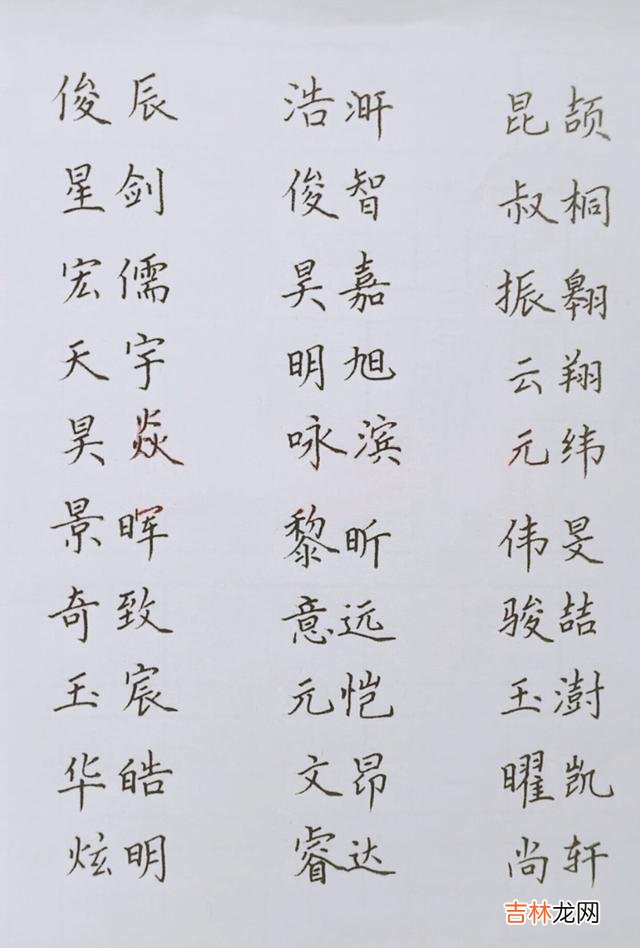 俊辰 浩汧 昆颉
星剑 俊智 叔桐
宏儒 昊嘉 振翱
天宇 明旭 云翔
昊焱 咏滨 元纬
景晖 黎昕 伟旻
奇致 意远 骏喆
玉宸 元恺 玉澍
华皓 文昂 曜凯
炫明 睿达 尚轩
吉林龙网